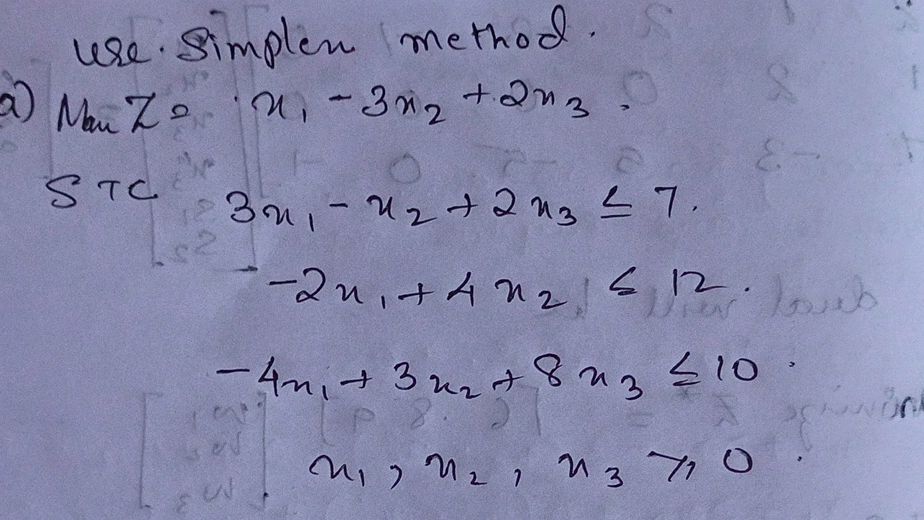 use simplex method.
a) Max Z = x₁ - 3x₂ + 2x₃.
STC 3x₁ - x₂ + 2x₃ ≤ 7.
-2x₁ + 4x₂ ≤ 12.
-4x₁ + 3x₂ + 8x₃ ≤ 10.
x₁, x₂, x₃ ≥ 0.